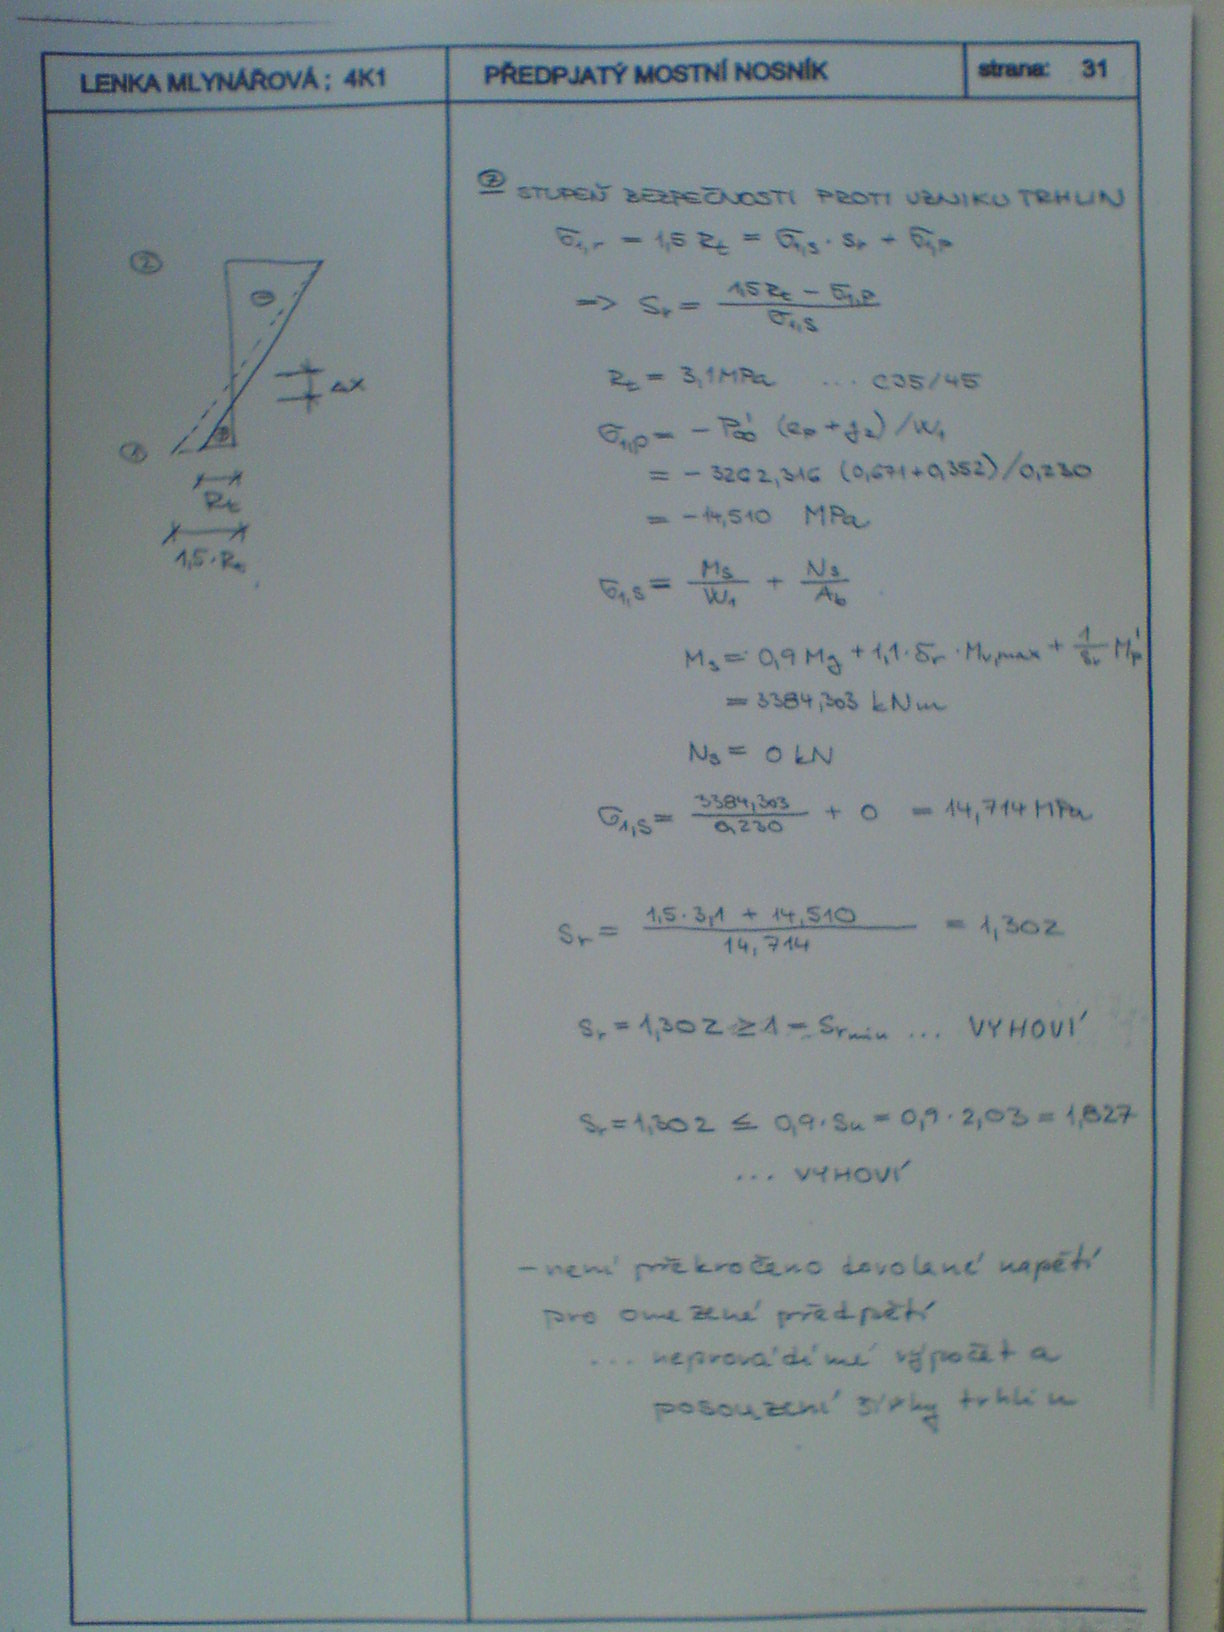 LENKA MLYNÁŘOVÁ: 4K1
PŘEDPJATÝ MOSTNÍ NOSNÍK
strana: 31
②
⊖
ΔX
①
⊕
Rt
1,5·Rt
② STUPEŇ BEZPEČNOSTI PROTI VZNIKU TRHLIN
σ1,r = 1,5 Rt = σ1,s · sr + σ1,p
=> sr = (1,5 Rt - σ1,p) / σ1,s
Rt = 3,1 MPa ... C35/45
σ1,p = - P∞' (ep + j2) / W1
= - 3262,316 (0,671+0,352)/0,230
= -14,510 MPa
σ1,s = Ms/W1 + Ns/Ab
Ms = 0,9 Mg + 1,1·δr·Mv,max + 1/sr Mp'
= 3384,303 kNm
Ns = 0 kN
σ1,s = 3384,303/0,230 + 0 = 14,714 MPa
sr = (1,5·3,1 + 14,510)/14,714 = 1,302
sr = 1,302 ≥ 1 = sr min ... VYHOVÍ
sr = 1,302 ≤ 0,9·su = 0,9·2,03 = 1,827
... VYHOVÍ
- není překročeno dovolené napětí
pro omezené předpětí
... neprovádíme výpočet a
posouzení šířky trhlin